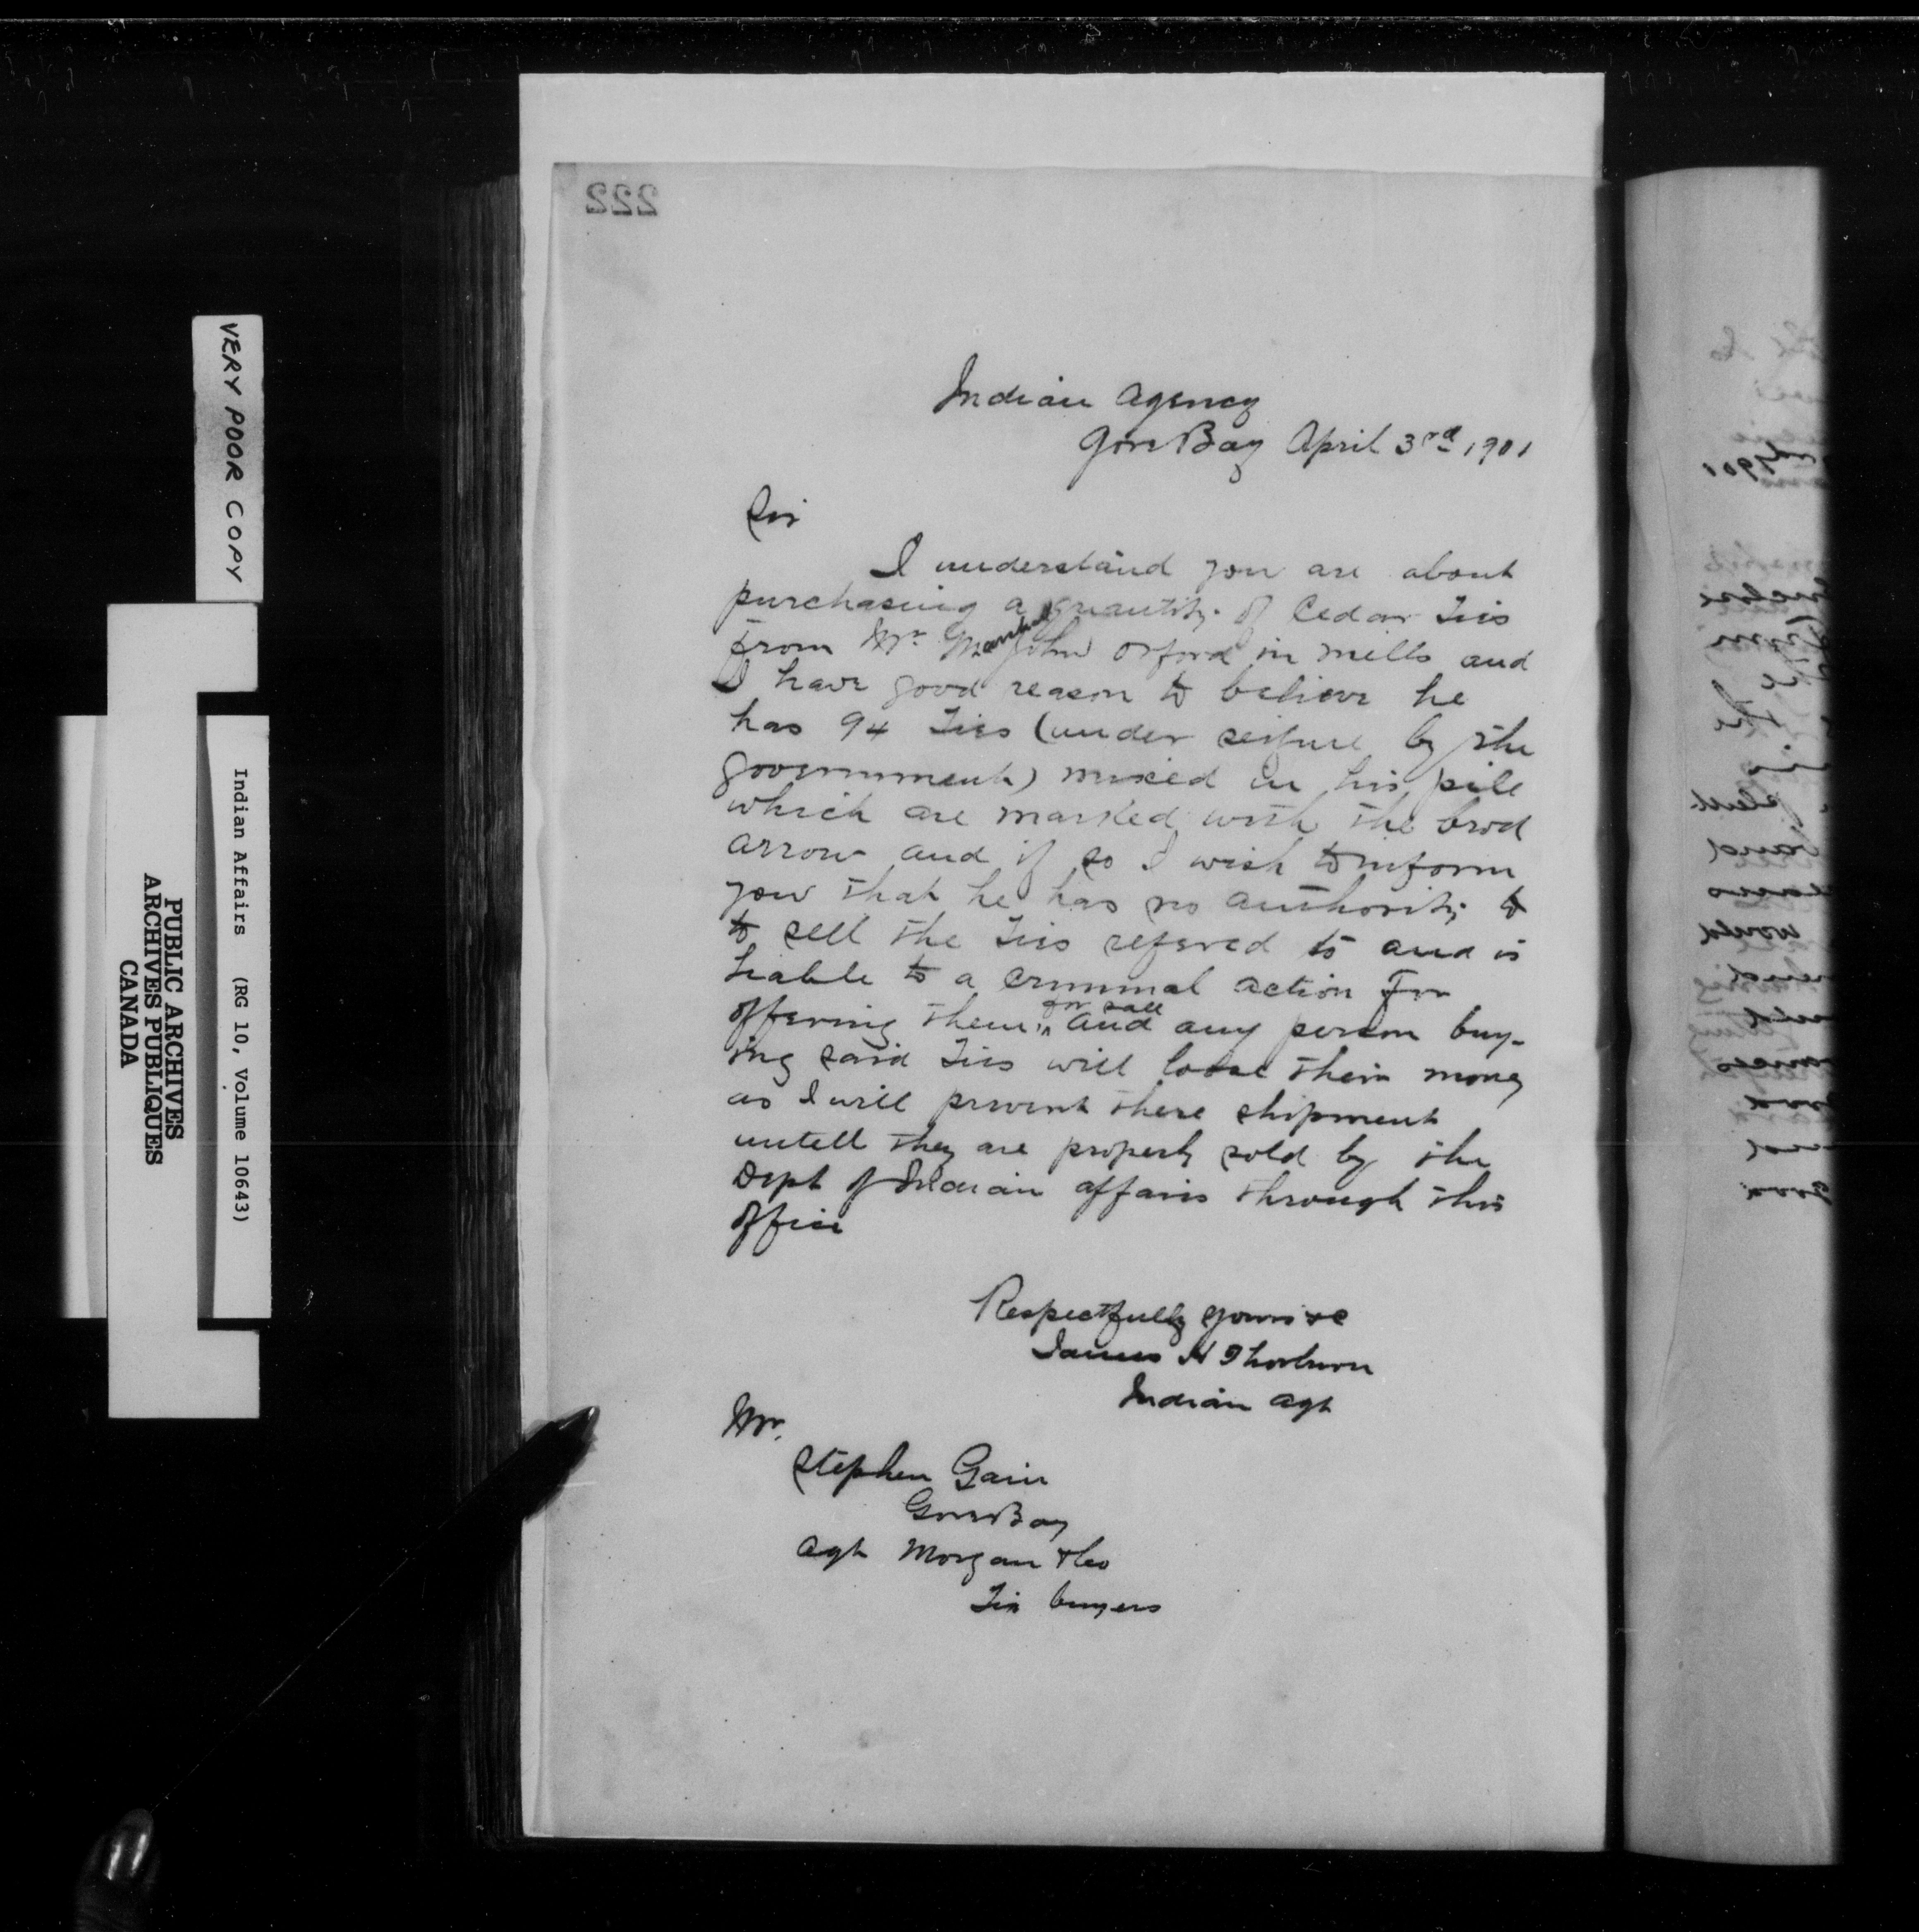 222
Indian Agency
Gore Bay April 3rd 1901
Sir
I understand you are about
purchasing a quantity of Cedar Ties
From Mr. Marshal John Orford in mills and
I have good reason to believe he
has 94 Ties (under seizure by the
government) mixed in his pile
which are marked with the brod
arrow and if so I wish to inform
you that he has no authority to
to sell the Ties refered to and is
liable to a criminal action For
offering them for sale and any person buy-
ing said Ties will loose their money
as I will prevent there shipment
untell they are properly sold by the
Dept of Indian affairs through this
office
Respectfully yours &c
James H Thorburn
Indian Agt
Mr.
Stephen Gain
Gore Bay
Agt Morgan & Co
Tie buyers
VERY POOR COPY
Indian Affairs (RG 10, Volume 10643)
PUBLIC ARCHIVES
ARCHIVES PUBLIQUES
CANADA